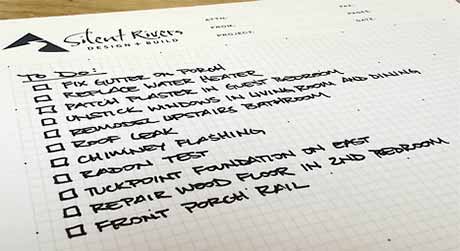 Silent Rivers
DESIGN + BUILD
ATTN:
FROM:
PROJECT:
FAX:
PAGES:
DATE:
TO DO:
FIX GUTTER ON PORCH
REPLACE WATER HEATER
PATCH PLASTER IN GUEST BEDROOM
UNSTICK WINDOWS IN LIVING ROOM AND DINING
REMODEL UPSTAIRS BATHROOM
ROOF LEAK
CHIMNEY FLASHING
RADON TEST
TUCKPOINT FOUNDATION ON EAST
REPAIR WOOD FLOOR IN 2ND BEDROOM
FRONT PORCH RAIL